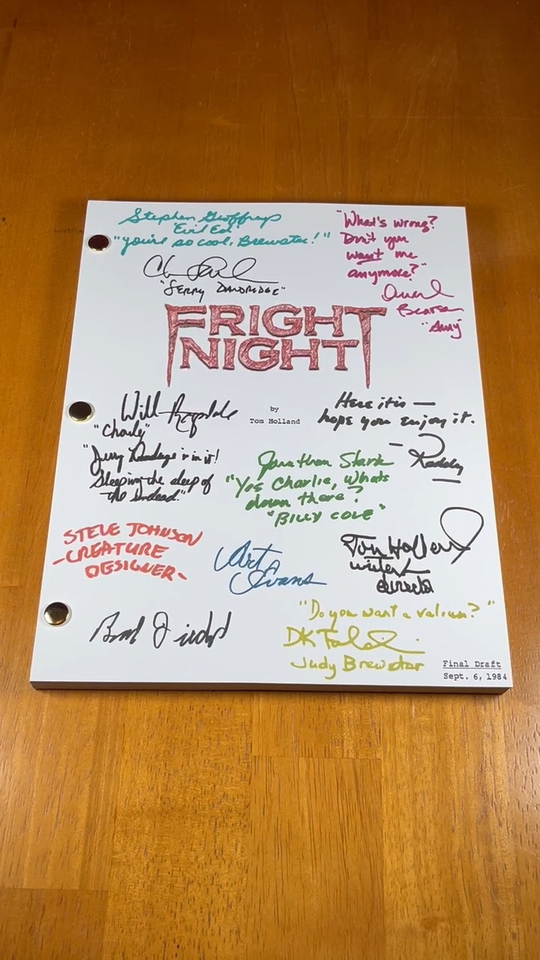 Stephen Geoffreys
"Evil Ed"
"You're so cool, Brewster!"
"What's wrong?
Don't you
want me
anymore?"
Bearse
"Amy"
"JERRY DANDRIDGE"
FRIGHT
NIGHT
by
Tom Holland
Will Ragsdale
"Charley"
"Jerry Dandridge is in it!
Sleeping the sleep of
the Undead"
Here it is —
hope you enjoy it.
— Roddy
Jonathan Stark
"Yes Charlie, Whats
down there?"
"BILLY COLE"
STEVE JOHNSON
-CREATURE
DESIGNER-
Art
Evans
Tom Holland
writer
director
"Do you want a valium?"
DK
Judy Brewster
Final Draft
Sept. 6, 1984